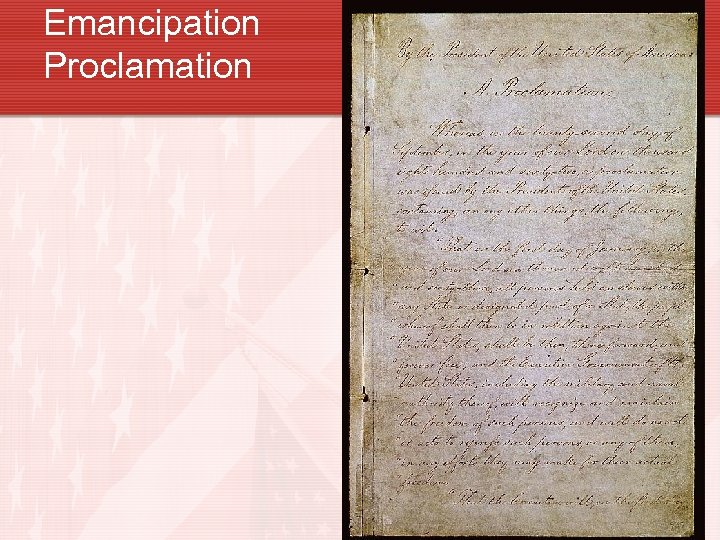 Emancipation
Proclamation
By the President of the United States of America:
A Proclamation.
Whereas, on the twenty-second day of
September, in the year of our Lord one thousand
eight hundred and sixty-two, a proclamation
was issued by the President of the United States,
containing, among other things, the following,
to wit:
"That on the first day of January, in the
year of our Lord one thousand eight hundred
and sixty-three, all persons held as slaves within
any State or designated part of a State, the people
whereof shall then be in rebellion against the
United States, shall be then, thenceforward, and
forever free; and the Executive Government of the
United States, including the military and naval
authority thereof, will recognize and maintain
the freedom of such persons, and will do no act
or acts to repress such persons, or any of them,
in any efforts they may make for their actual
freedom.
"That the Executive will, on the first day